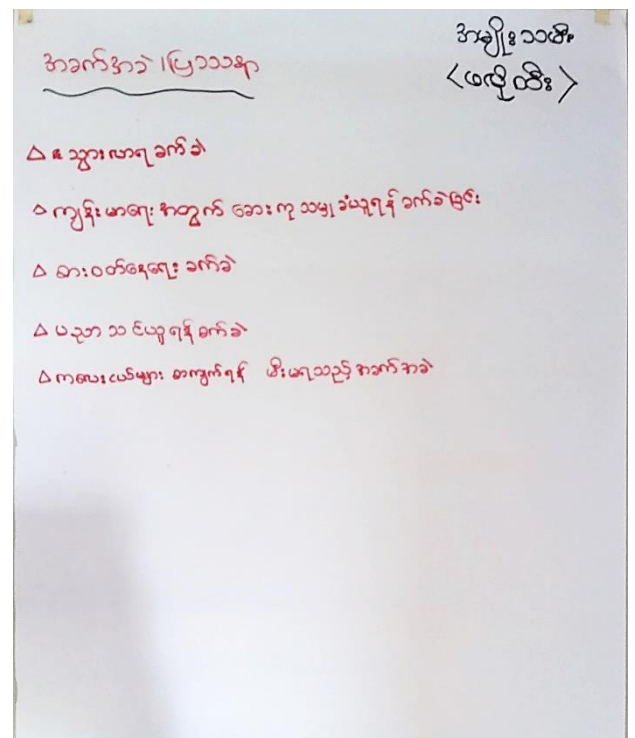 အမျိုးသမီး
(ဖလိုထီး)
အခက်အခဲ၊ ပြဿနာ
သွားလာရခက်ခဲ
ကျန်းမာရေးအတွက် ဆေးကုသမှုခံယူရန် ခက်ခဲခြင်း
စားဝတ်နေရေး ခက်ခဲ
ပညာသင်ယူရန်ခက်ခဲ
ကလေးငယ်များ စာကျက်ရန် မီးမရသည့်အခက်အခဲ